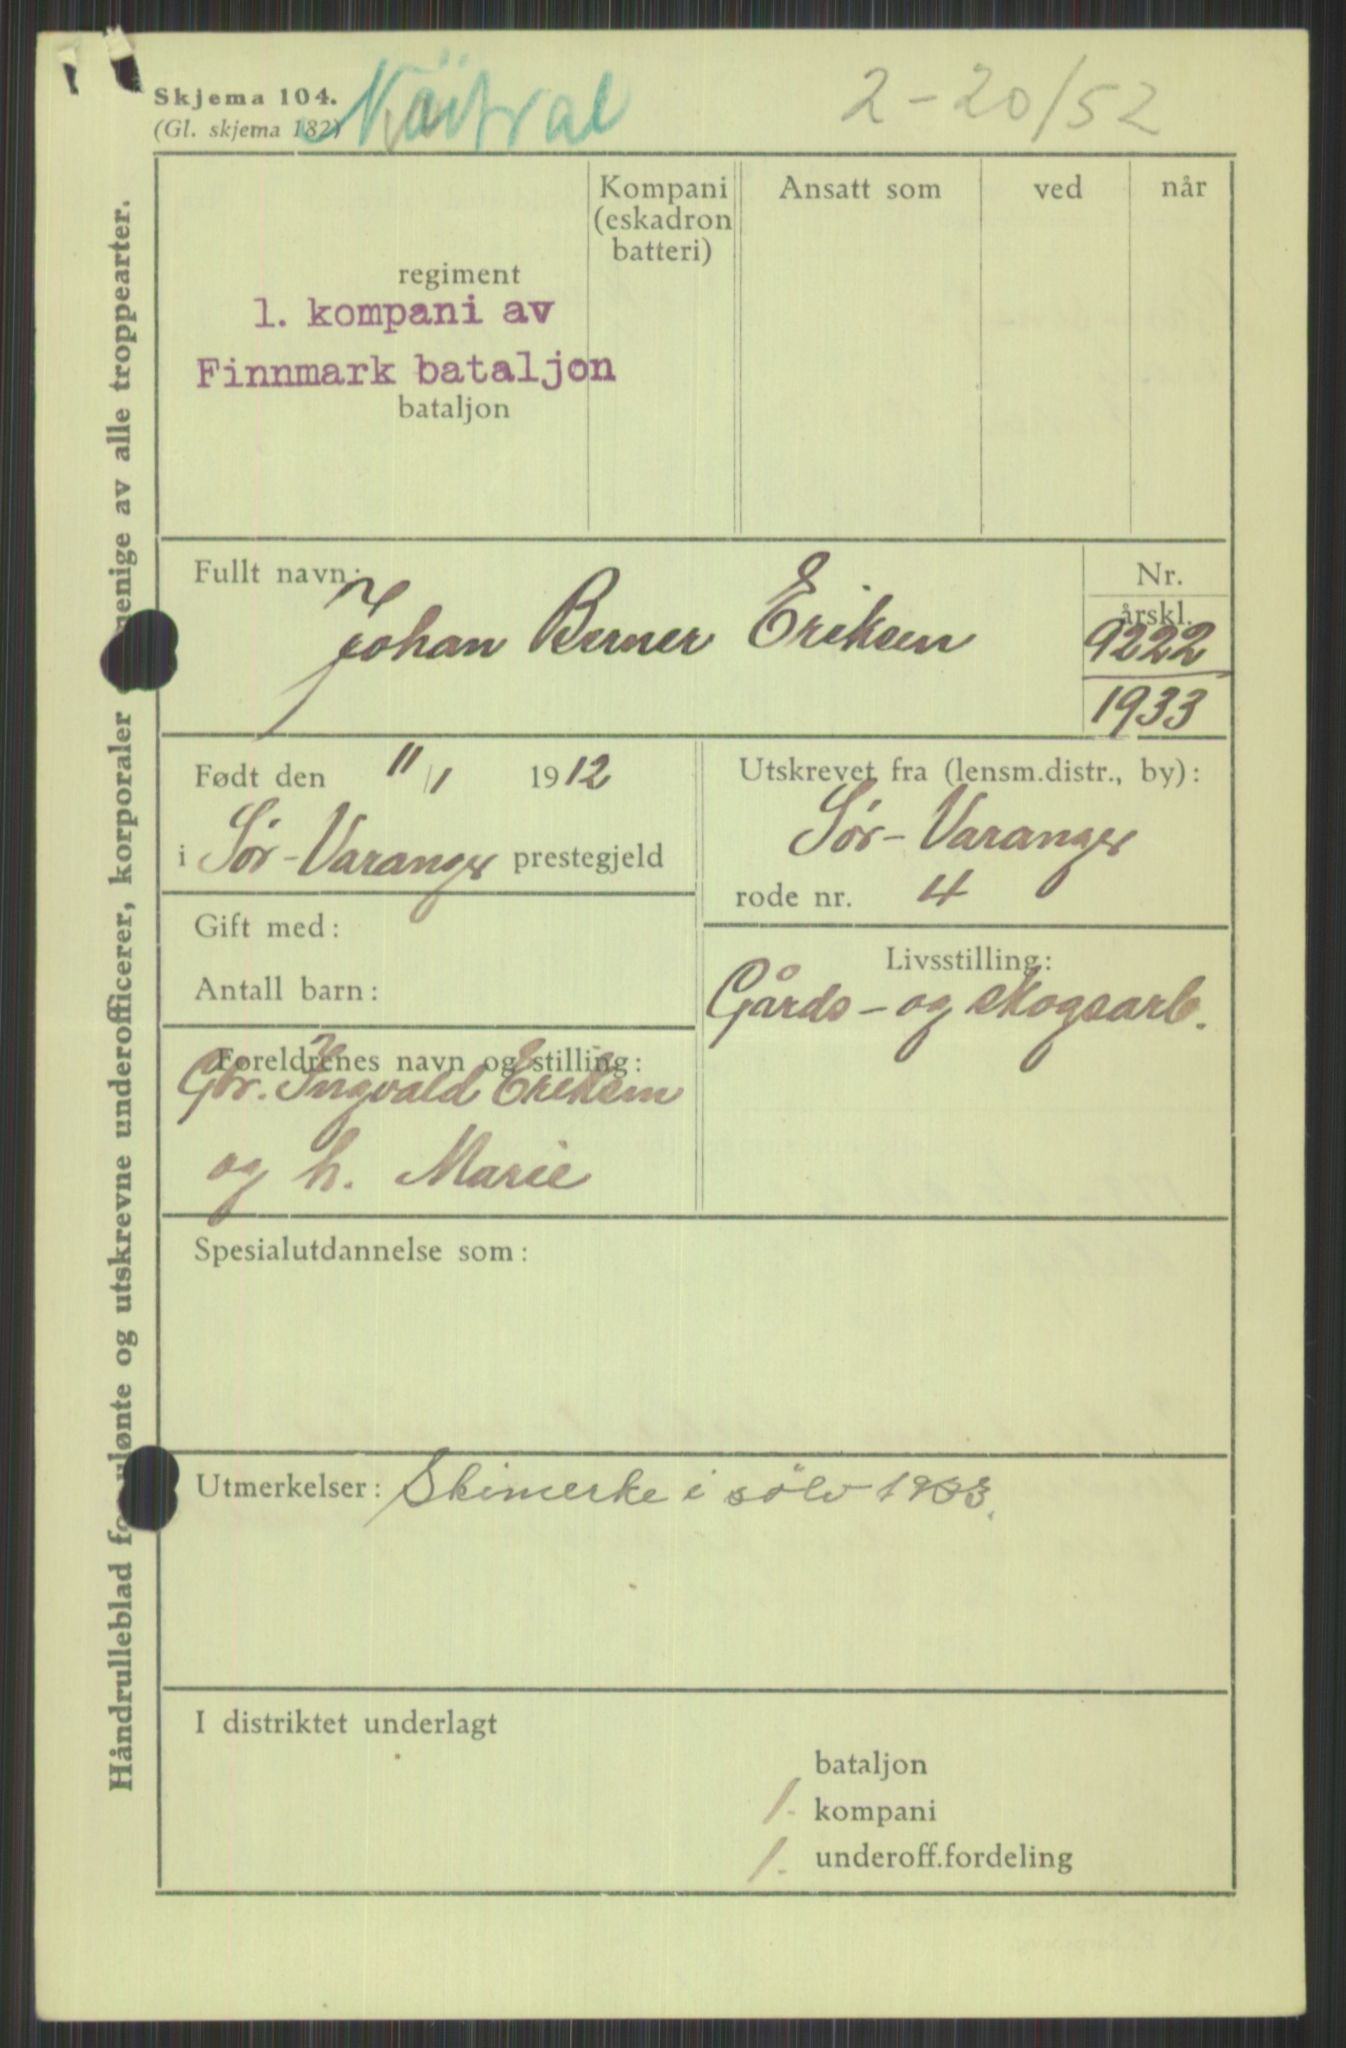 Skjema 104.
(Gl. skjema 182)
2-20/52
Håndrulleblad for utskrevne underofficerer, korporaler menige av alle troppearter.
Kompani
(eskadron
batteri)
Ansatt som
ved
når
regiment
1. kompani av
Finnmark bataljon
bataljon
Fullt navn:
Johan Berner Eriksen
Nr.
årskl.
9222
1933
Født den 11/1 1912
i Sør-Varanger prestegjeld
Utskrevet fra (lensm.distr., by):
Sør-Varanger
rode nr. 4
Gift med:
Antall barn:
Livsstilling:
Gårds- og skogsarb.
Foreldrenes navn og stilling:
Gbr. Ingvald Eriksen
og h. Marie
Spesialutdannelse som:
Utmerkelser: Skimerke i sölv 1933.
I distriktet underlagt
bataljon
1. kompani
1. underoff.fordeling